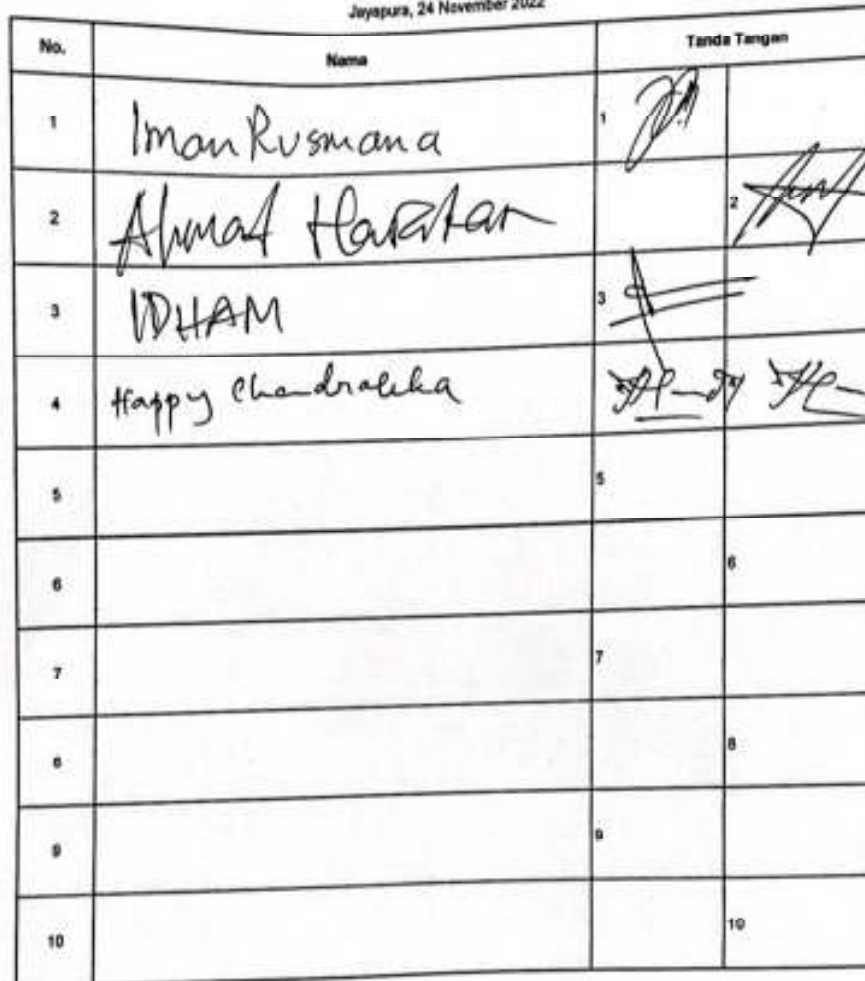 Jayapura, 24 November 2022
No. Nama Tanda Tangan
1 Iman Rusmana 1
2 Ahmad 2
3 IDHAM 3
4 Happy Chandraleka
5 5
6 6
7 7
8 8
9 9
10 10